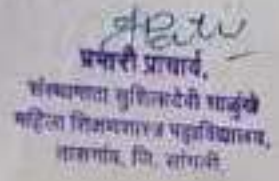 प्रभारी प्राचार्य,
संस्थामाता सुशिलादेवी साळुंखे
महिला शिक्षणशास्त्र महाविद्यालय,
तासगांव, जि. सांगली.